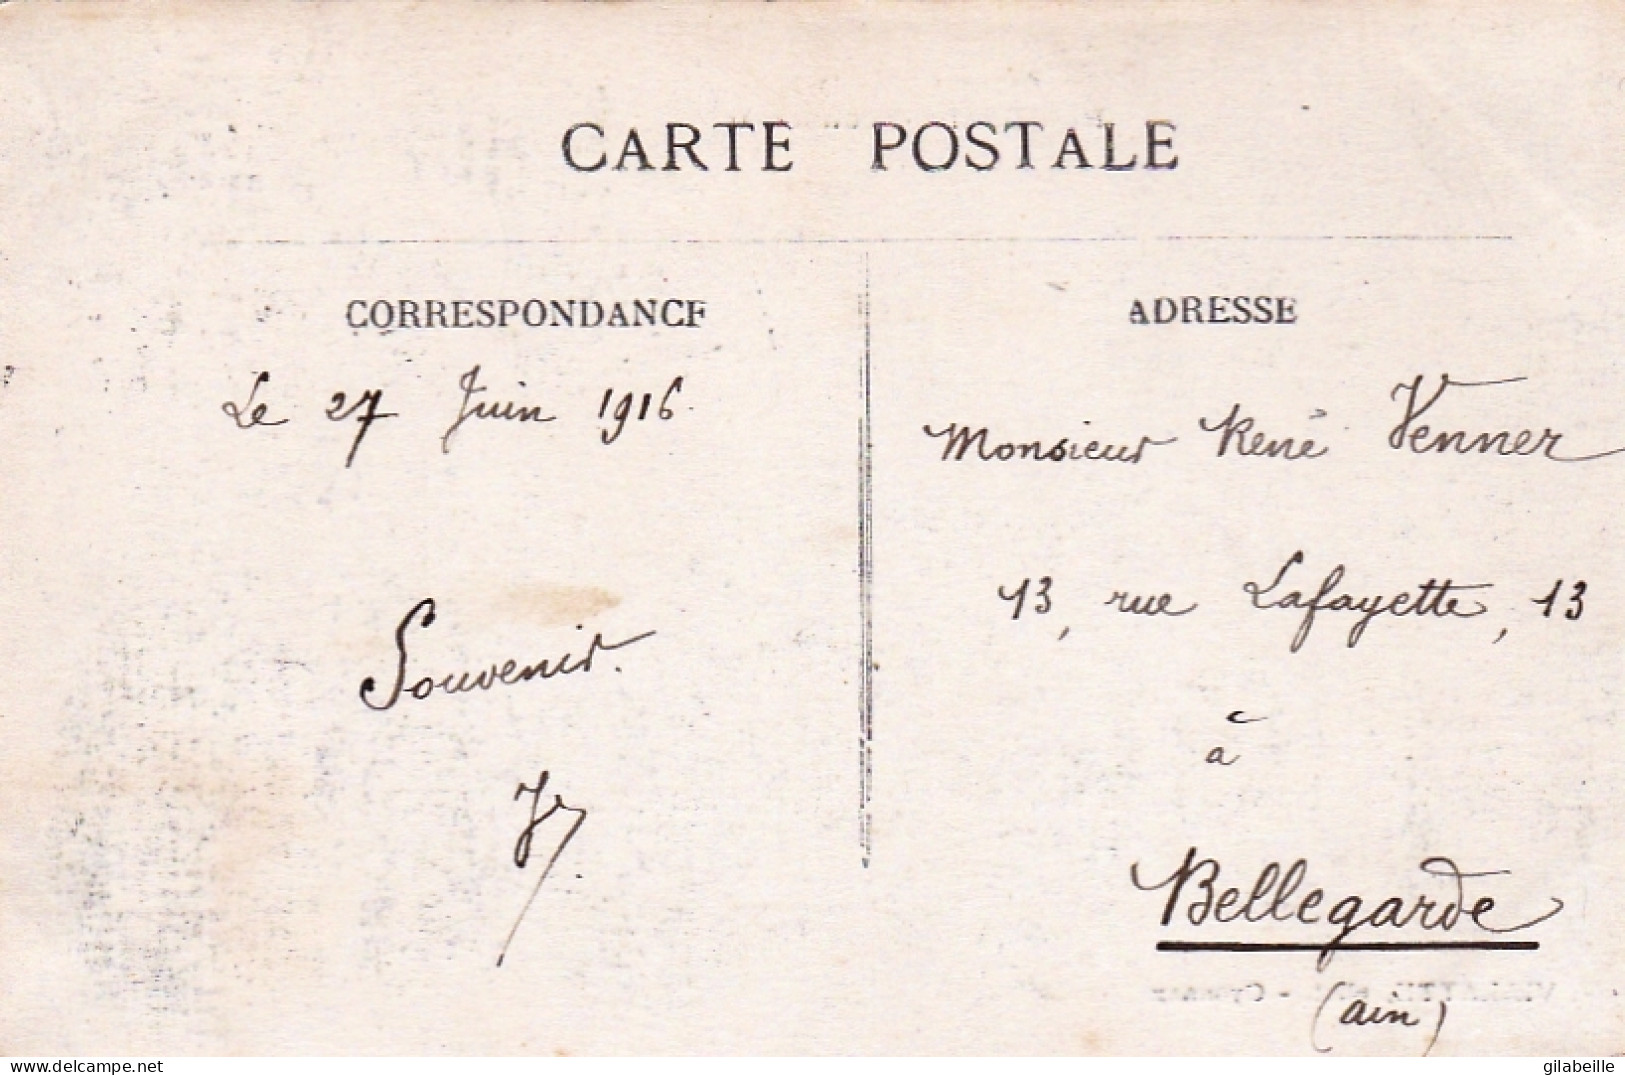 CARTE POSTALE
CORRESPONDANCE
Le 27 Juin 1916.
Souvenir.
ADRESSE
Monsieur René Venner
13, rue Lafayette, 13
à
Bellegarde
(ain)
delcampe.net
gilabeille